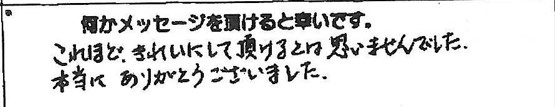 何かメッセージを頂けると幸いです。
これほど、きれいにして頂けるとは思いませんでした.
本当に ありがとうございました.